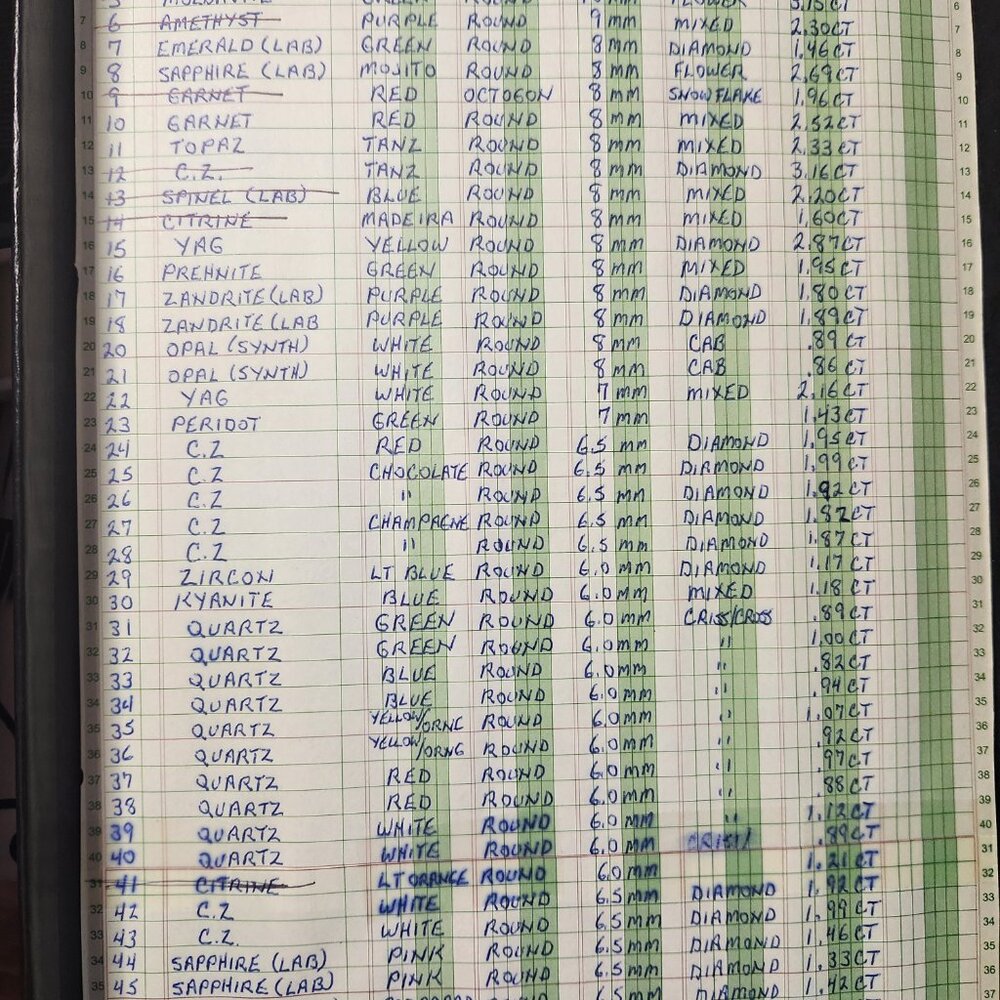 6 FLOWER 3.15CT 6
7 6 AMETHYST PURPLE ROUND 9mm MIXED 2.30CT 7
8 7 EMERALD (LAB) GREEN ROUND 8mm DIAMOND 1.46CT 8
9 8 SAPPHIRE (LAB) MOJITO ROUND 8mm FLOWER 2.69CT 9
10 9 GARNET RED OCTOGON 8mm SNOWFLAKE 1.96CT 10
11 10 GARNET RED ROUND 8mm MIXED 2.52CT 11
12 11 TOPAZ TANZ ROUND 8mm MIXED 2.33CT 12
13 12 C.Z. TANZ ROUND 8mm DIAMOND 3.16CT 13
14 13 SPINEL (LAB) BLUE ROUND 8mm MIXED 2.20CT 14
15 14 CITRINE MADEIRA ROUND 8mm MIXED 1.60CT 15
16 15 YAG YELLOW ROUND 8mm DIAMOND 2.87CT 16
17 16 PREHNITE GREEN ROUND 8mm MIXED 1.95CT 17
18 17 ZANDRITE (LAB) PURPLE ROUND 8mm DIAMOND 1.80CT 18
19 18 ZANDRITE (LAB PURPLE ROUND 8mm DIAMOND 1.89CT 19
20 20 OPAL (SYNTH) WHITE ROUND 8mm CAB .89CT 20
21 21 OPAL (SYNTH) WHITE ROUND 8mm CAB .86CT 21
22 22 YAG WHITE ROUND 7mm MIXED 2.16CT 22
23 23 PERIDOT GREEN ROUND 7mm 1.43CT 23
24 24 C.Z RED ROUND 6.5mm DIAMOND 1.95CT 24
25 25 C.Z CHOCOLATE ROUND 6.5mm DIAMOND 1.99CT 25
26 26 C.Z " ROUND 6.5mm DIAMOND 1.92CT 26
27 27 C.Z CHAMPAGNE ROUND 6.5mm DIAMOND 1.82CT 27
28 28 C.Z " ROUND 6.5mm DIAMOND 1.87CT 28
29 29 ZIRCON LT BLUE ROUND 6.0mm DIAMOND 1.17CT 29
30 30 KYANITE BLUE ROUND 6.0mm MIXED 1.18CT 30
31 31 QUARTZ GREEN ROUND 6.0mm CRISS/CROSS .89CT 31
32 32 QUARTZ GREEN ROUND 6.0mm " 1.00CT 32
33 33 QUARTZ BLUE ROUND 6.0mm " .82CT 33
34 34 QUARTZ BLUE ROUND 6.0mm " .94CT 34
35 35 QUARTZ YELLOW/ORNG ROUND 6.0mm " 1.07CT 35
36 36 QUARTZ YELLOW/ORNG ROUND 6.0mm " .92CT 36
37 37 QUARTZ RED ROUND 6.0mm " .97CT 37
38 38 QUARTZ RED ROUND 6.0mm " .88CT 38
39 39 QUARTZ WHITE ROUND 6.0mm " 1.12CT 39
40 40 QUARTZ WHITE ROUND 6.0mm .89CT 40
31 41 CITRINE LT ORANGE ROUND 6.0mm 1.21CT 31
32 42 C.Z WHITE ROUND 6.5mm DIAMOND 1.92CT 32
33 43 C.Z. WHITE ROUND 6.5mm DIAMOND 1.99CT 33
34 44 SAPPHIRE (LAB) PINK ROUND 6.5mm DIAMOND 1.46CT 34
35 45 SAPPHIRE (LAB) PINK ROUND 6.5mm DIAMOND 1.33CT 35
ROUND 6.5mm DIAMOND 1.42CT 37